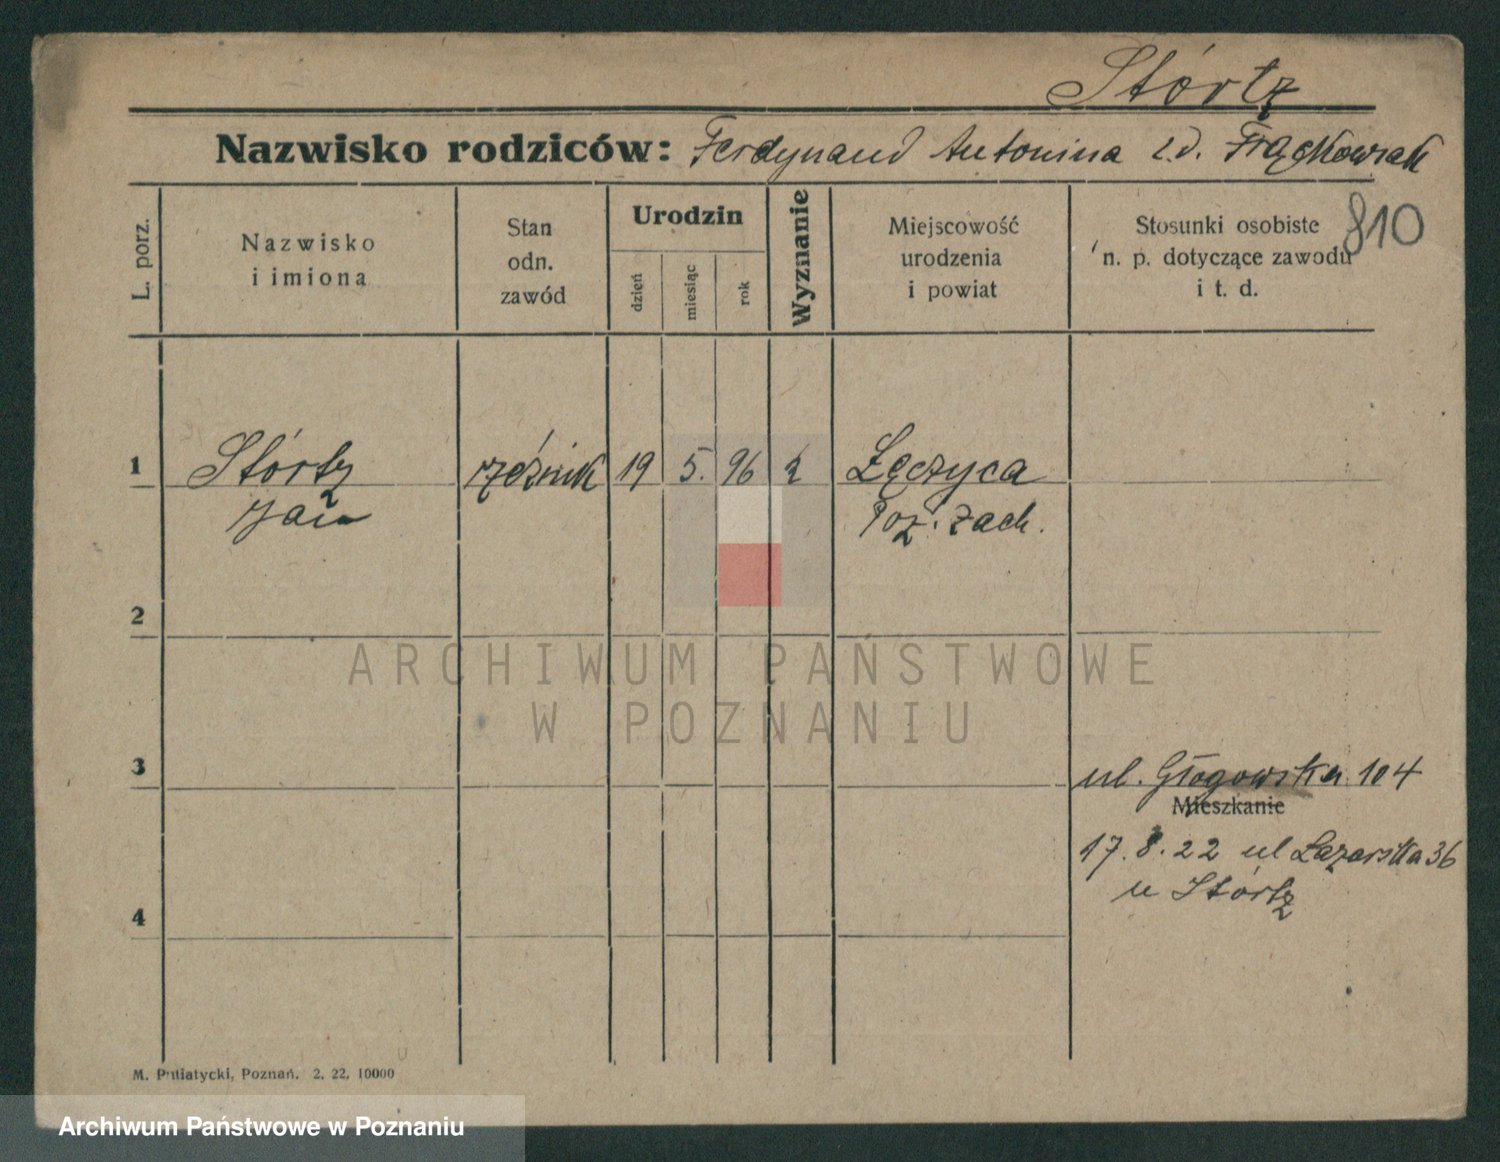 Stórtz
Nazwisko rodziców: Ferdynand Antonina z.d. Frąckowiak
810
L. porz.
Nazwisko
i imiona
Stan
odn.
zawód
Urodzin
dzień
miesiąc
rok
Wyznanie
Miejscowość
urodzenia
i powiat
Stosunki osobiste
n. p. dotyczące zawodu
i t. d.
1
Stórtz
Jan
rzeźnik
19
5.
96
Łęczyca
Poz. Zach.
2
ARCHIWUM PAŃSTWOWE
W POZNANIU
3
ul. Głogowska 104
Mieszkanie
17.8.22 ul Łazarska 36
u Stórtz
4
M. Putiatycki, Poznań. 2. 22. 10000
Archiwum Państwowe w Poznaniu